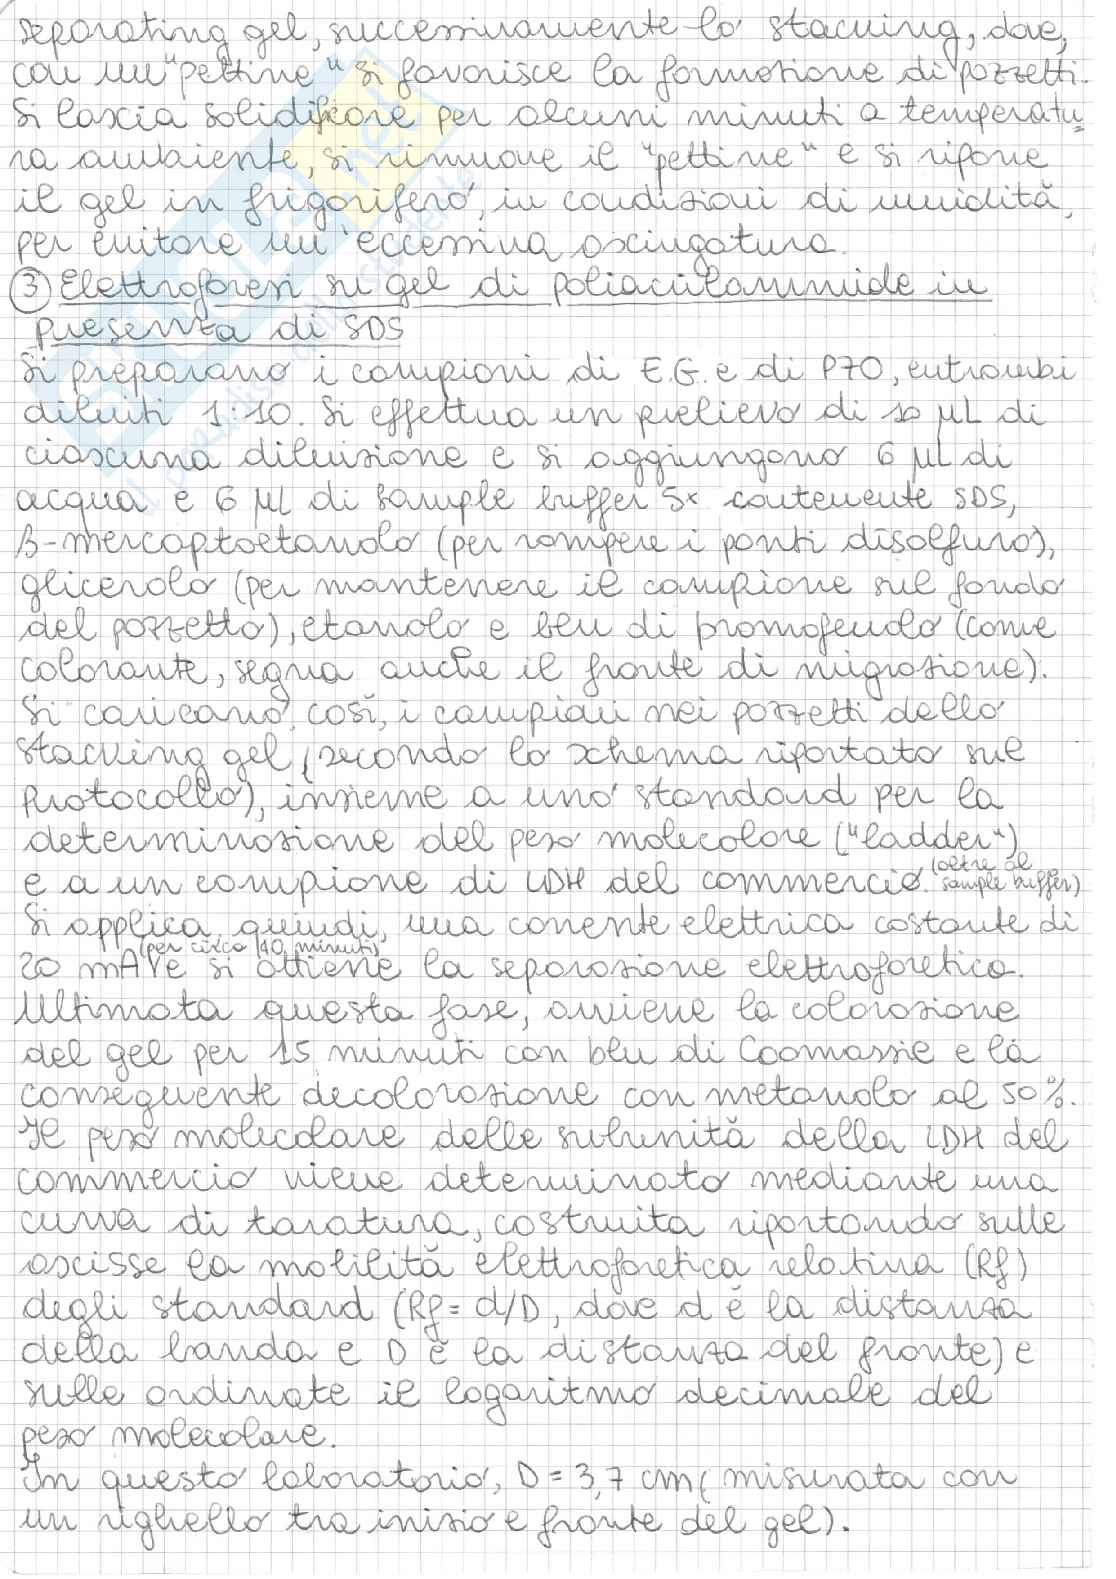 separating gel, successivamente lo stacking, dove,
con un "pettine" si favorisce la formazione di pozzetti.
Si lascia solidificare per alcuni minuti a temperatu=
ra ambiente, si rimuove il "pettine" e si ripone
il gel in frigorifero, in condizioni di umidità,
per evitare un'eccessiva asciugatura.
③ Elettroforesi su gel di poliacrilammide in
presenza di SDS
Si preparano i campioni di E.G. e di P70, entrambi
diluiti 1:10. Si effettua un prelievo di 10 µL di
ciascuna diluizione e si aggiungono 6 µL di
acqua e 6 µL di sample buffer 5x contenente SDS,
β-mercaptoetanolo (per rompere i ponti disolfuro),
glicerolo (per mantenere il campione sul fondo
del pozzetto), etanolo e blu di bromofenolo (come
colorante, segna anche il fronte di migrazione).
Si caricano, così, i campioni nei pozzetti dello
stacking gel (secondo lo schema riportato sul
protocollo), insieme a uno standard per la
determinazione del peso molecolare ("ladder")
e a un campione di LDH del commercio. (oltre al sample buffer)
Si applica, quindi, una corrente elettrica costante di
20 mA (per circa 40 minuti) e si ottiene la separazione elettroforetica.
Ultimata questa fase, avviene la colorazione
del gel per 15 minuti con blu di Coomassie e la
conseguente decolorazione con metanolo al 50%.
Il peso molecolare delle subunità della LDH del
commercio viene determinato mediante una
curva di taratura, costruita riportando sulle
ascisse la mobilità elettroforetica relativa (Rf)
degli standard (Rf = d/D, dove d è la distanza
della banda e D è la distanza del fronte) e
sulle ordinate il logaritmo decimale del
peso molecolare.
In questo laboratorio, D = 3,7 cm (misurata con
un righello tra inizio e fronte del gel).